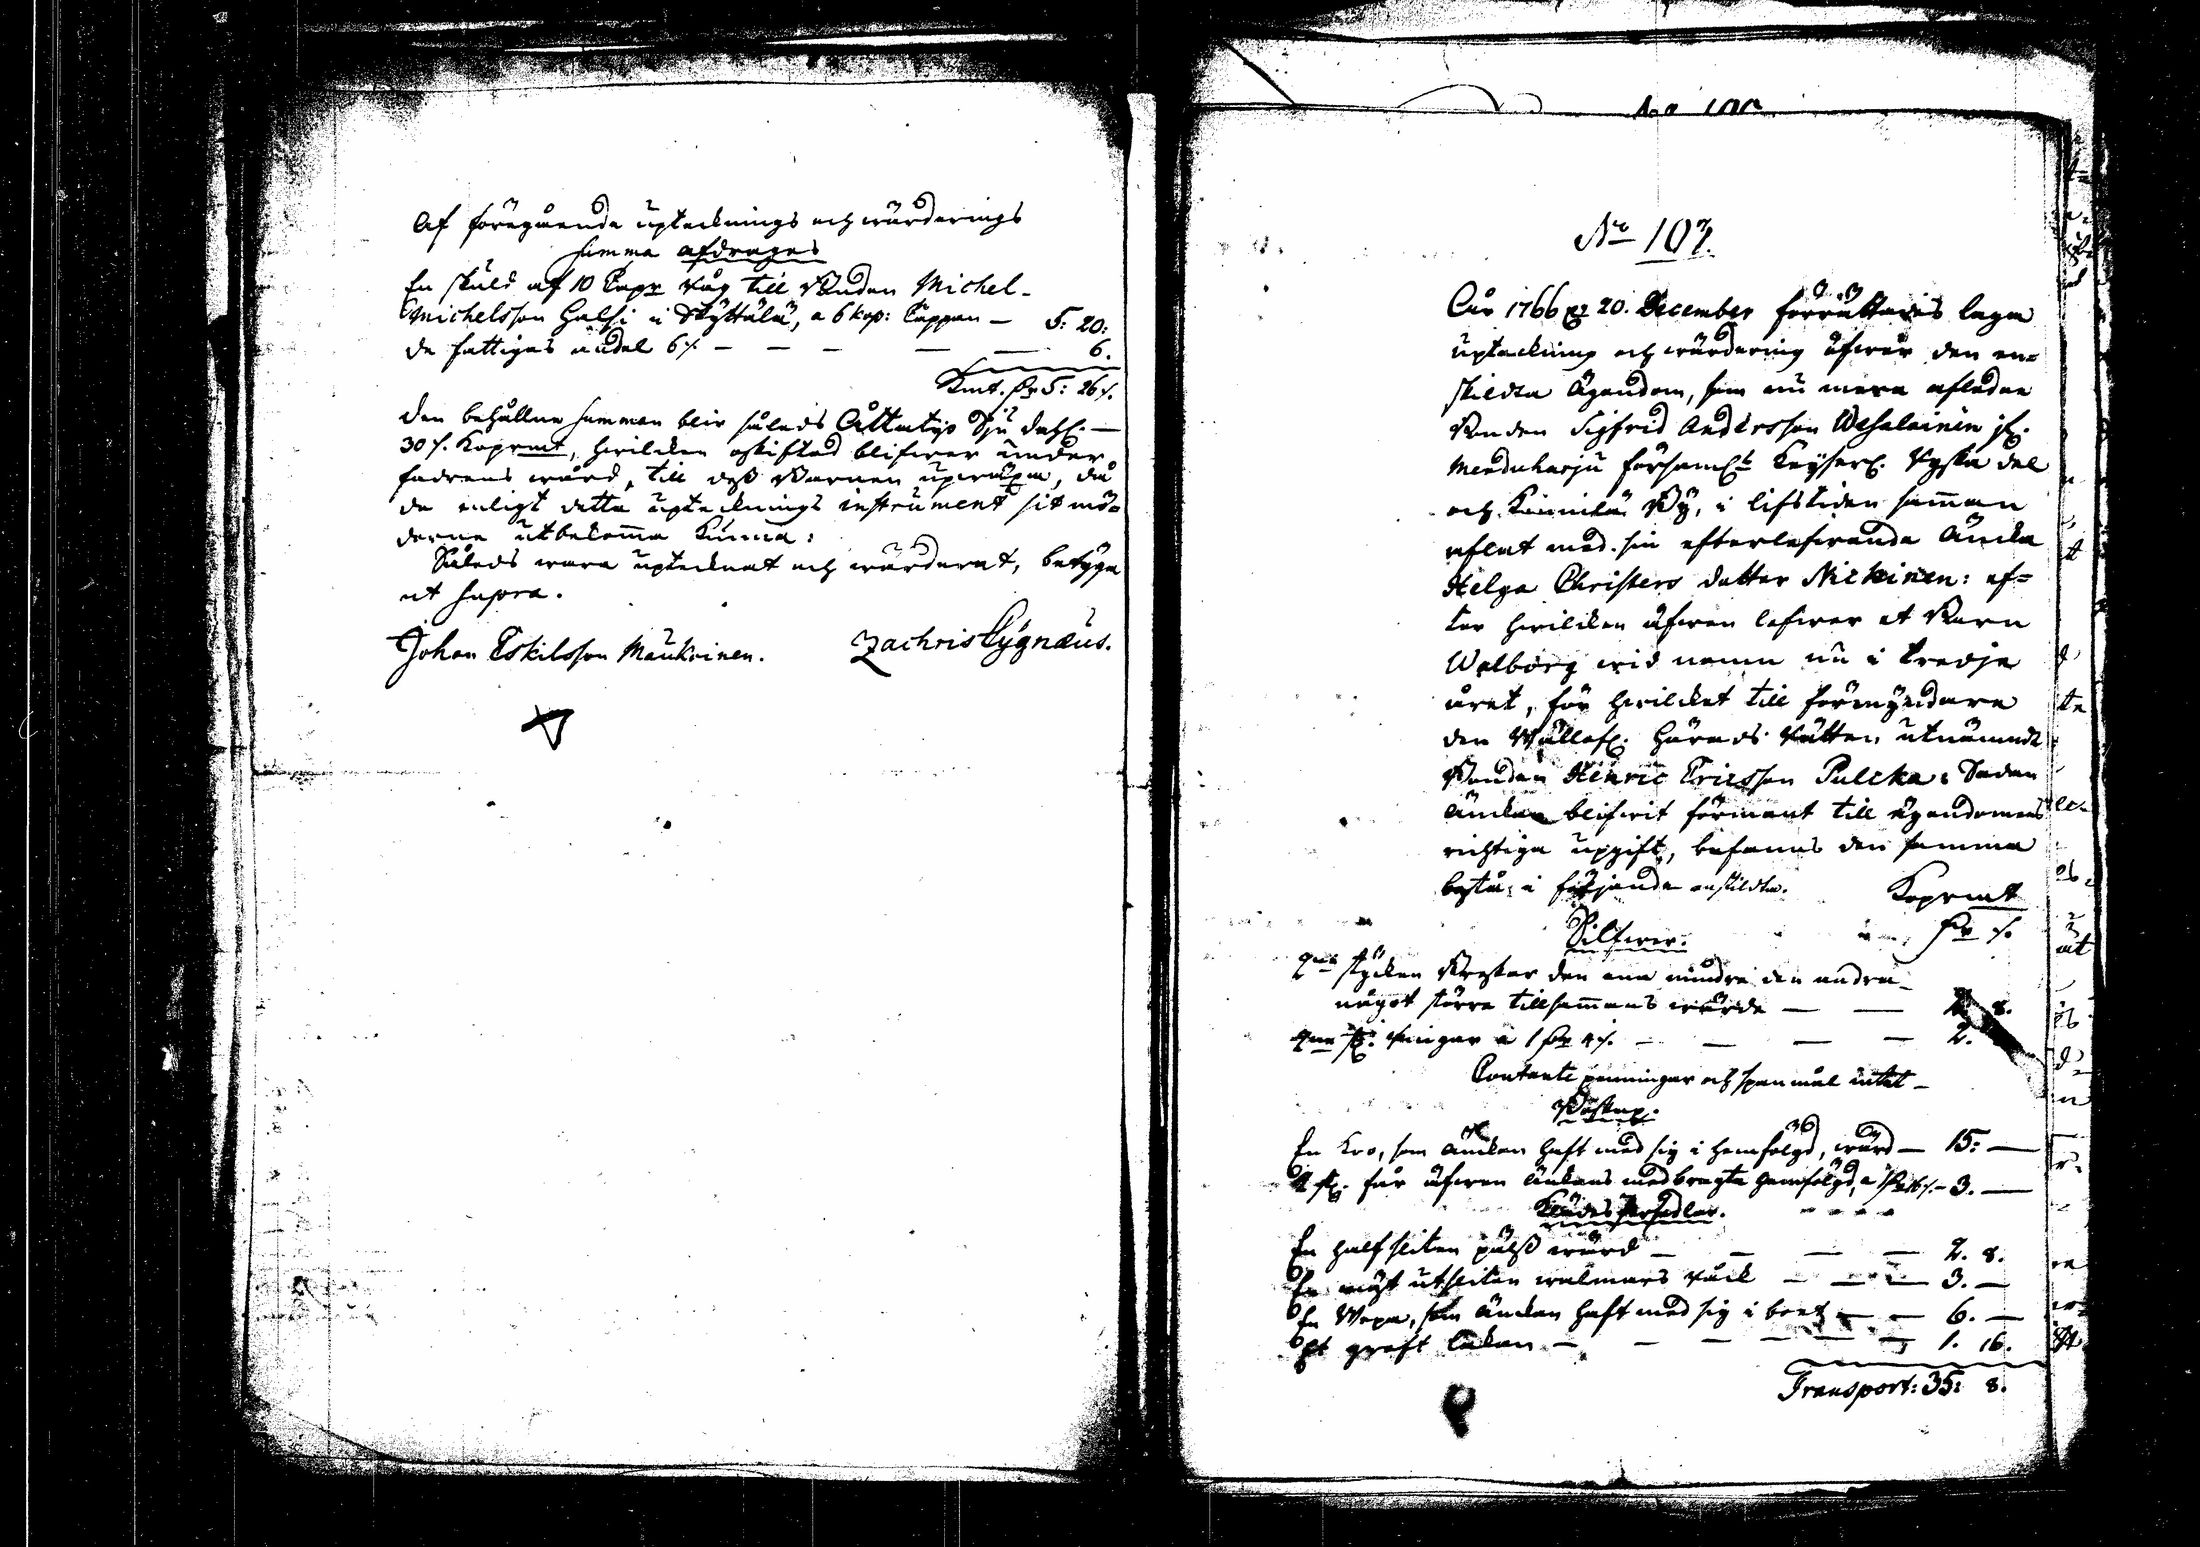 Af föregående uptecknings och wärderings
summa afdrages
En skuld af 10 Capr råg till Bonden Michel
Michelsson Halsi i Kyttälä, a 6 kop: Cappan — 5: 20:
de fattigas andel 6 /. — — — — — 6.
Kmt. Dr 5: 26 /.
den behållne summan blir således Åttatijo Sju dahlr —
30 /. Koprmt, hwilcken oskiftad blifwer under
fadrens wård, till dess Barnen upwäxa, då
de enligt detta uptecknings instrument sit mö-
derne utbekomma kunna:
Således wara upteknat och wärderat, betyga
ut supra.
Johan Eskilsson Maukoinen. Zachris Cygnæus.
No 107.
Åhr 1766 d 20. December förrättades laga
upteckning och wärdering öfwer den en-
skildta Ägendom, som nu mera afledne
Bonden Sigfrid Andersson Wesalainen ifr.
Menduharju församl: Keyserl. Ryska del
och By, i lifstiden samman
aflat med sin efterlefwande Äncka
Helga Christers dotter Nickinen: ef-
ter hwilcken äfwen lefwer et Barn
Walborg wid namn nu i tredje
året, för hwilcket till förmyndare
den Wällofl. Härads Rätten utnämndt
Bonden Henric Ericsson Pulcka: Sedan
Änckan blifwit förmant till ägendomens
richtiga upgift, befanns den samma
bestå i följande enskildta. Koprmt
Silfwer. Dr /.
2ne stycken Breskor den ena mindre den andra
något större tillsammans wärde — — 2. 8.
2ne st: ringar a 1 Dr 4 /. — — — — 2.
Contante penningar och spanmål intet —
Boskap.
En Kro, som änckan haft med sig i hemfölgd, wärd — 15: —
2 st. får äfwen änckans medbragta hemfölgd, a 1 Dr 16 /. — 3. —
Klädes Persedlar.
En half sliten päls wärd — — — — 2. 8.
En mäst utsliten walmars råck — — — 3. —
En Wepa, som änckan haft med sig i boet — — 6. —
Et groft lakan — — — — — — 1. 16.
Transport: 35: 8.